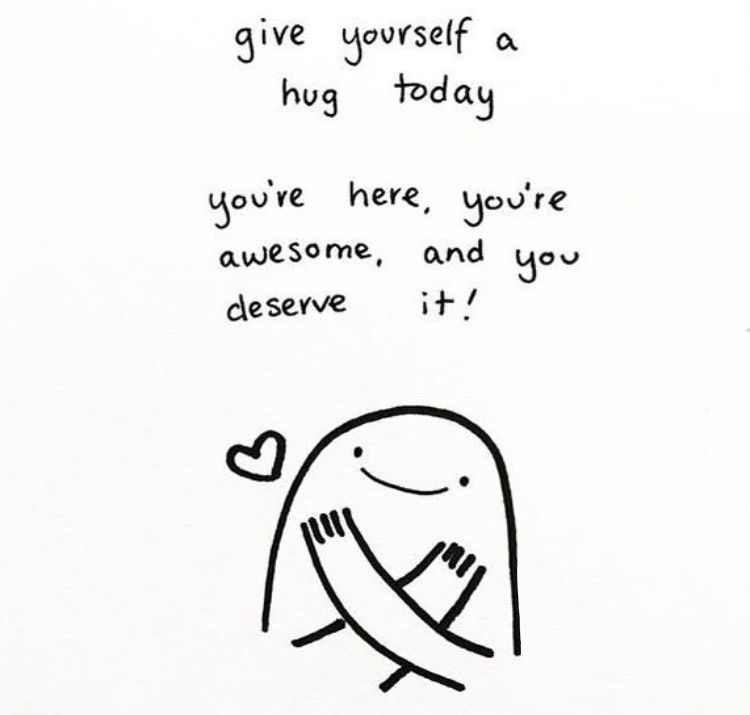 give yourself a
hug today
you're here, you're
awesome, and you
deserve it!